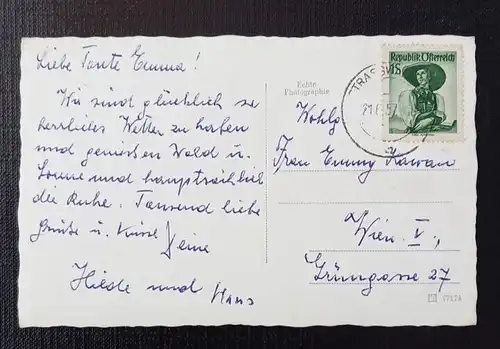 Liebe Tante Emma!
Wir sind glücklich so
herrliches Wetter zu haben
und geniessen Wald u.
Sonne und hauptsächlich
die Ruhe. Tausend liebe
Grüße u. Küsse Deine
Heide und Hans
Echte
Photographie
Republik Österreich
1S
TRA
21.
57
Wohlg
Frau Emmy Kawan
Wien V.,
Grüngasse 27